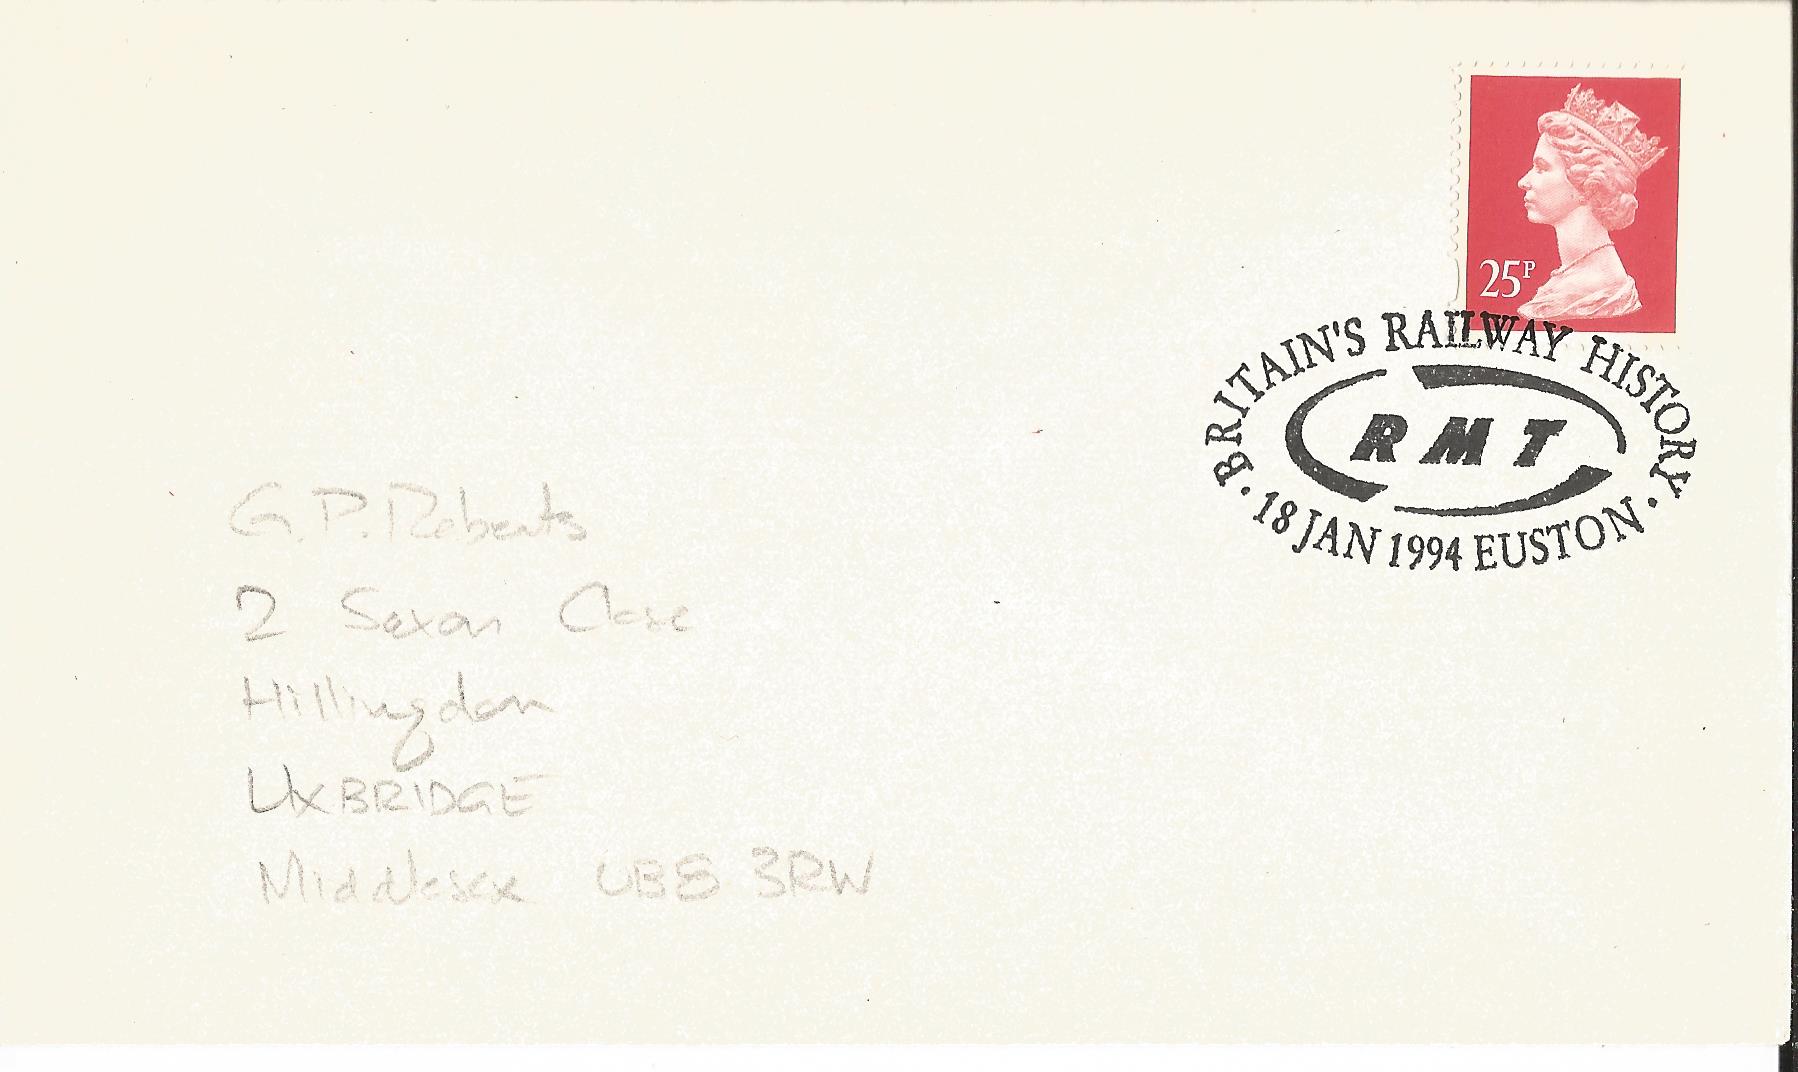 25P
BRITAIN'S RAILWAY HISTORY
RMT
· 18 JAN 1994 EUSTON ·
G.P. Roberts
2 Saxon Close
Hillingdon
UXBRIDGE
Middlesex UB8 3RW